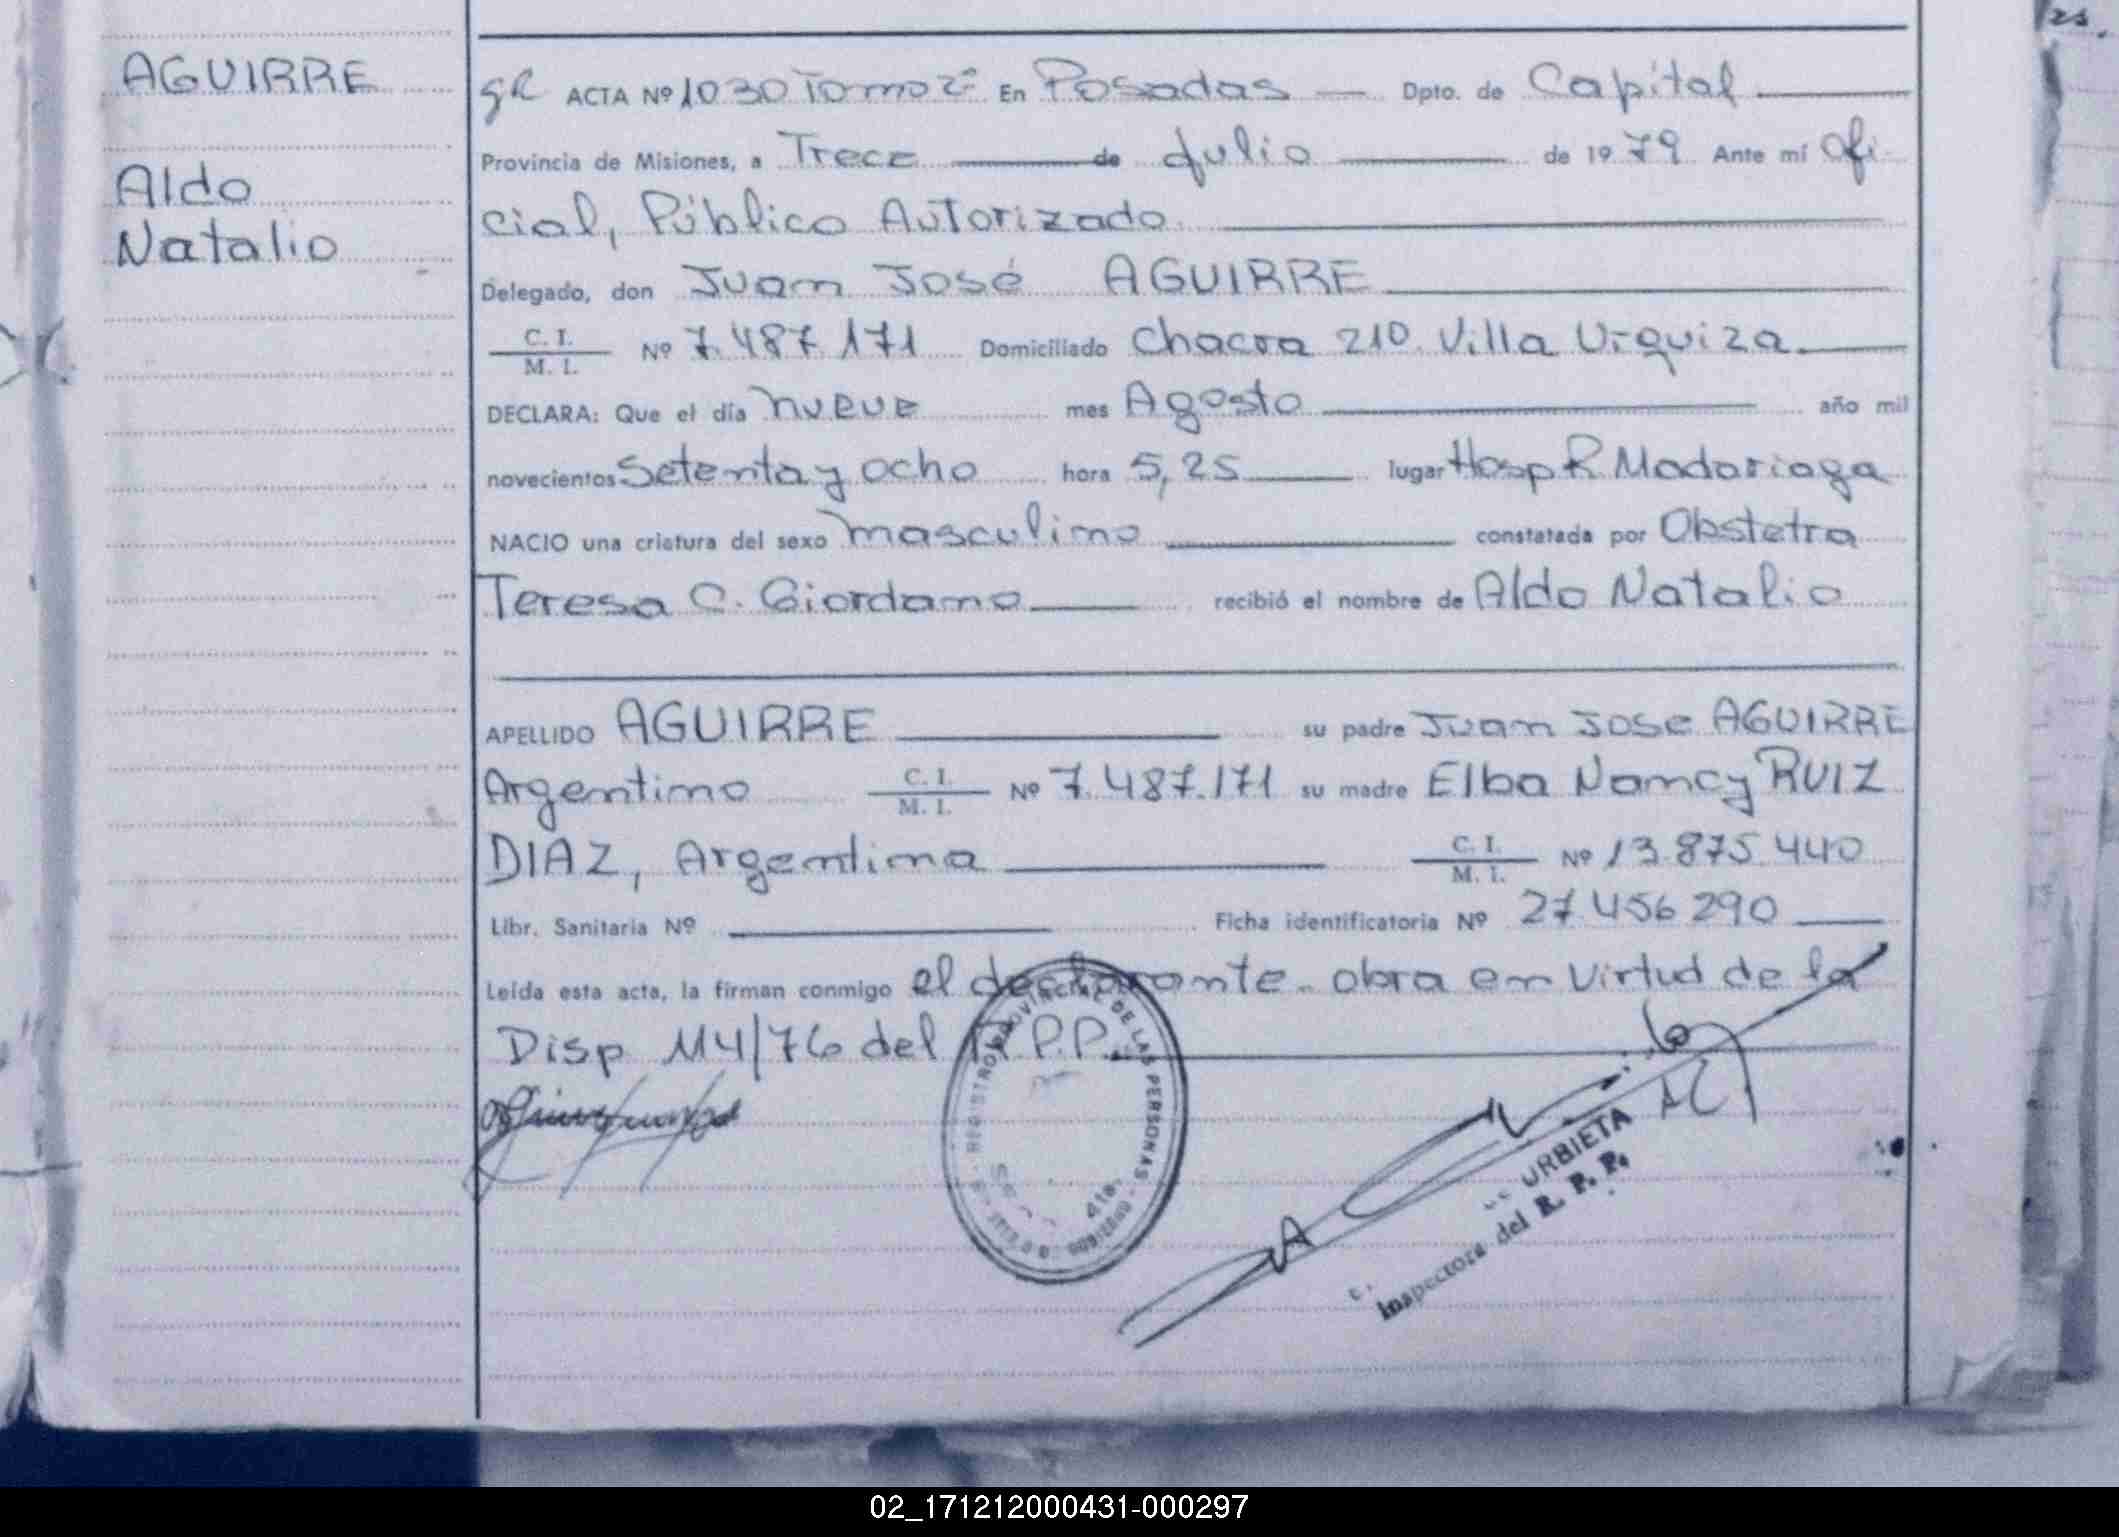 AGUIRRE
Aldo
Natalio
gR ACTA Nº 1030 Tomo 2º En Posadas Dpto. de Capital
Provincia de Misiones, a Trece de Julio de 1979 Ante mí Ofi-
cial, Público Autorizado
Delegado, don Juan José AGUIRRE
C. I.
M. I. Nº 7.487.171 Domiciliado Chacra 210 Villa Urquiza
DECLARA: Que el día nueve mes Agosto año mil
novecientos Setenta y ocho hora 5,25 lugar Hosp R. Madariaga
NACIO una criatura del sexo masculino constatada por Obstetra
Teresa C. Giordano recibió el nombre de Aldo Natalio
APELLIDO AGUIRRE su padre Juan Jose AGUIRRE
Argentino C. I.
M. I. Nº 7.487.171 su madre Elba Nancy RUIZ
DIAZ, Argentina C. I.
M. I. Nº 13.875.440
Libr. Sanitaria Nº Ficha identificatoria Nº 27.456.290
Leída esta acta, la firman conmigo el declarante. obra en virtud de la
Disp 114/76 del R.P.P.
REGISTRO PROVINCIAL DE LAS PERSONAS
URBIETA
Inspectora del R. P. P.
02_171212000431-000297